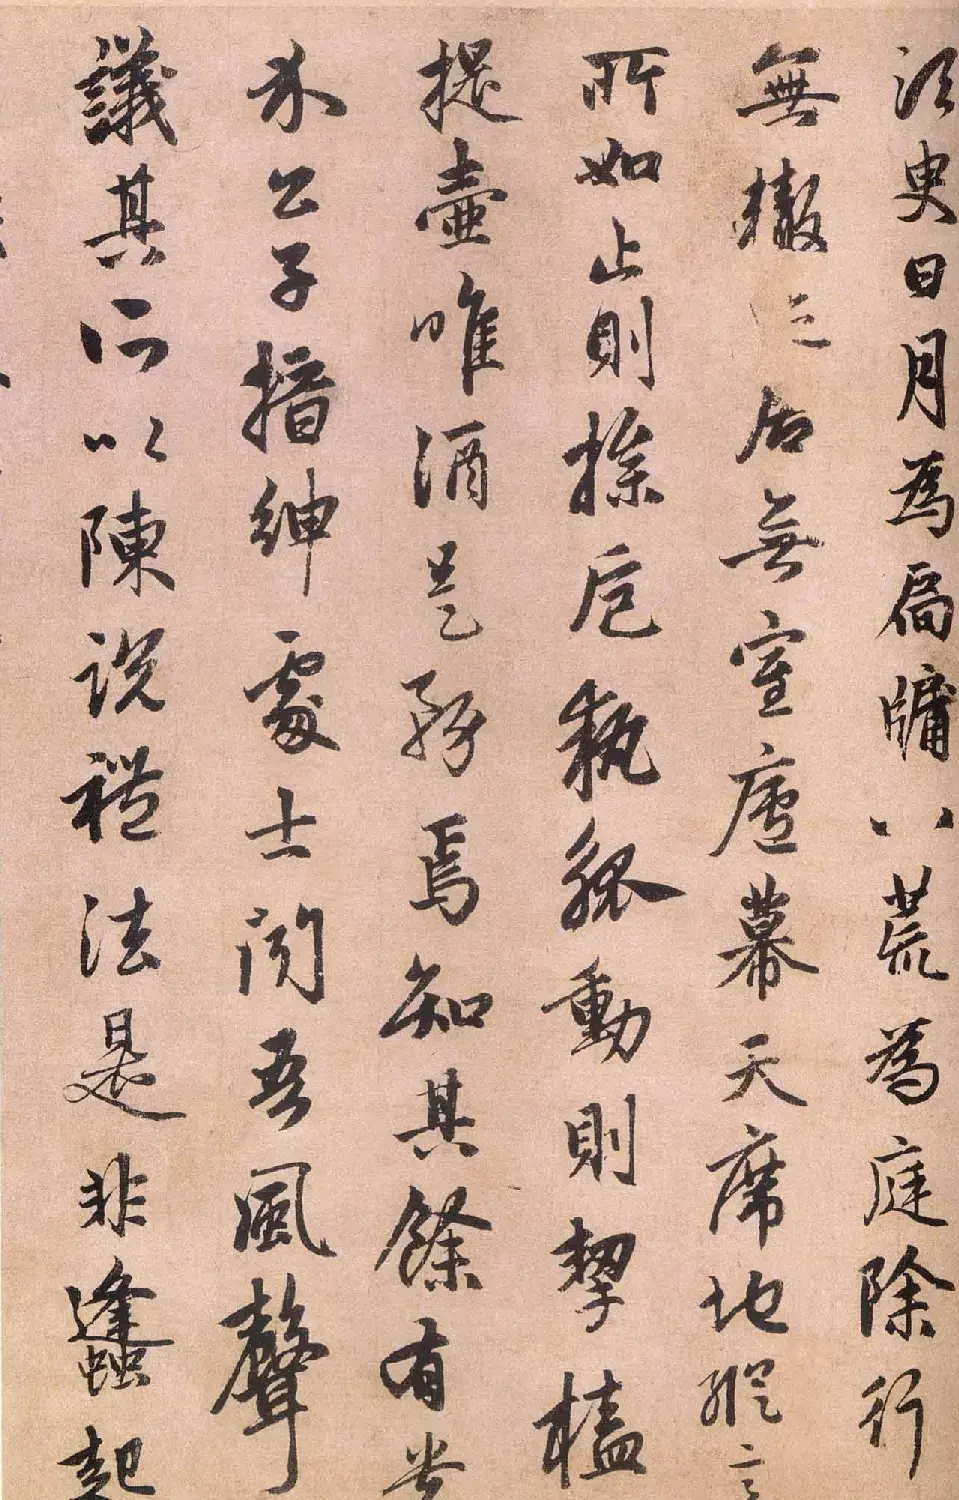 須臾日月為扃牖八荒為庭除行
無轍居無室廬幕天席地縱意
所如止則操卮執觚動則挈榼
提壺唯酒是務焉知其餘有貴
介公子搢紳處士聞吾風聲
議其所以陳說禮法是非蠭起